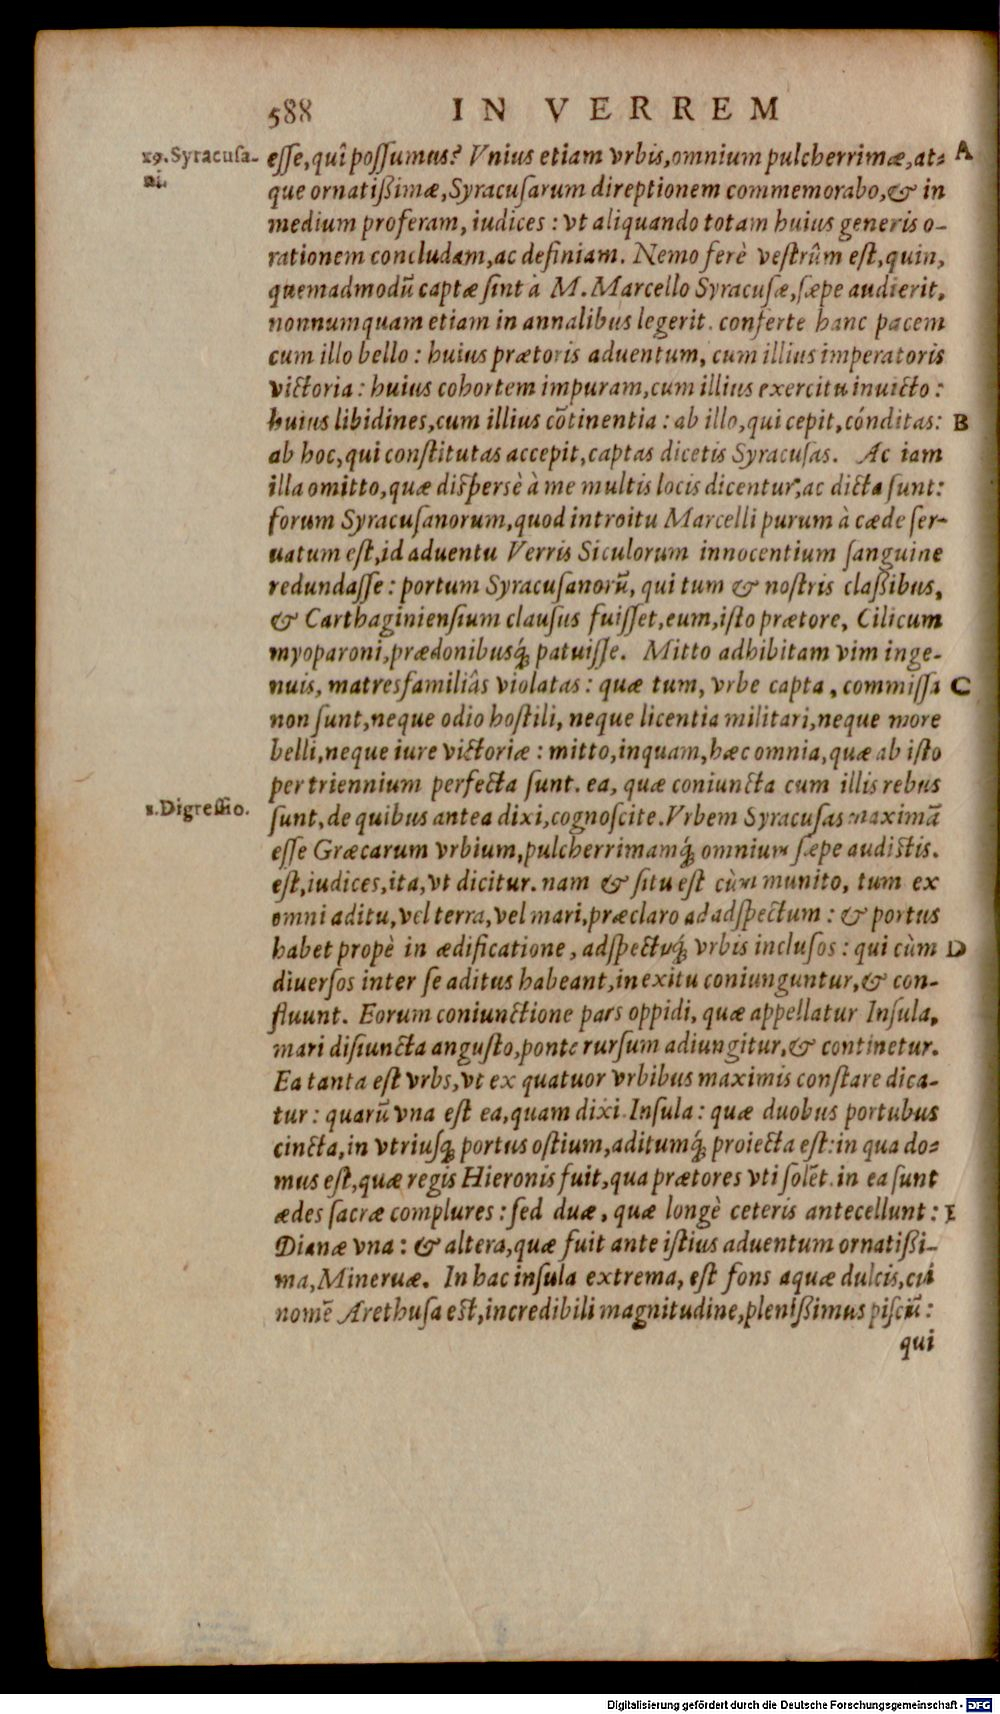 588 IN VERREM
19. Syracusa-
ni.
esse, quî possumus? Vnius etiam vrbis, omnium pulcherrimæ, at- A
que ornatißimæ, Syracusarum direptionem commemorabo, & in
medium proferam, iudices: vt aliquando totam huius generis o-
rationem concludam, ac definiam. Nemo ferè vestrûm est, quin,
quemadmodū captæ sint à M. Marcello Syracusæ, sæpe audierit,
nonnumquam etiam in annalibus legerit. conferte hanc pacem
cum illo bello: huius prætoris aduentum, cum illius imperatoris
victoria: huius cohortem impuram, cum illius exercitu inuicto:
huius libidines, cum illius cōtinentia: ab illo, qui cepit, cónditas: B
ab hoc, qui constitutas accepit, captas dicetis Syracusas. Ac iam
illa omitto, quæ dispersè à me multis locis dicentur, ac dicta sunt:
forum Syracusanorum, quod introitu Marcelli purum à cæde ser-
uatum est, id aduentu Verris Siculorum innocentium sanguine
redundasse: portum Syracusanorū, qui tum & nostris claßibus,
& Carthaginiensium clausus fuisset, eum, isto prætore, Cilicum
myoparoni, prædonibusq́; patuisse. Mitto adhibitam vim inge-
nuis, matresfamiliâs violatas: quæ tum, vrbe capta, commissa C
non sunt, neque odio hostili, neque licentia militari, neque more
belli, neque iure victoriæ: mitto, inquam, hæc omnia, quæ ab isto
per triennium perfecta sunt. ea, quæ coniuncta cum illis rebus
s. Digressio.
sunt, de quibus antea dixi, cognoscite. Vrbem Syracusas maximā
esse Græcarum vrbium, pulcherrimamq́; omnium sæpe audistis.
est, iudices, ita, vt dicitur. nam & situ est cùm munito, tum ex
omni aditu, vel terra, vel mari, præclaro ad adspectum: & portus
habet propè in ædificatione, adspectuq́; vrbis inclusos: qui cùm D
diuersos inter se aditus habeant, in exitu coniunguntur, & con-
fluunt. Eorum coniunctione pars oppidi, quæ appellatur Insula,
mari disiuncta angusto, ponte rursum adiungitur, & continetur.
Ea tanta est vrbs, vt ex quatuor vrbibus maximis constare dica-
tur: quarū vna est ea, quam dixi Insula: quæ duobus portubus
cincta, in vtriusq; portus ostium, aditumq́; proiecta est: in qua do-
mus est, quæ regis Hieronis fuit, qua prætores vti solēt. in ea sunt
ædes sacræ complures: sed duæ, quæ longè ceteris antecellunt: E
Dianæ vna: & altera, quæ fuit ante istius aduentum ornatißi-
ma, Mineruæ. In hac insula extrema, est fons aquæ dulcis, cui
nomē Arethusa est, incredibili magnitudine, plenißimus pisciū:
qui
Digitalisierung gefördert durch die Deutsche Forschungsgemeinschaft - DFG